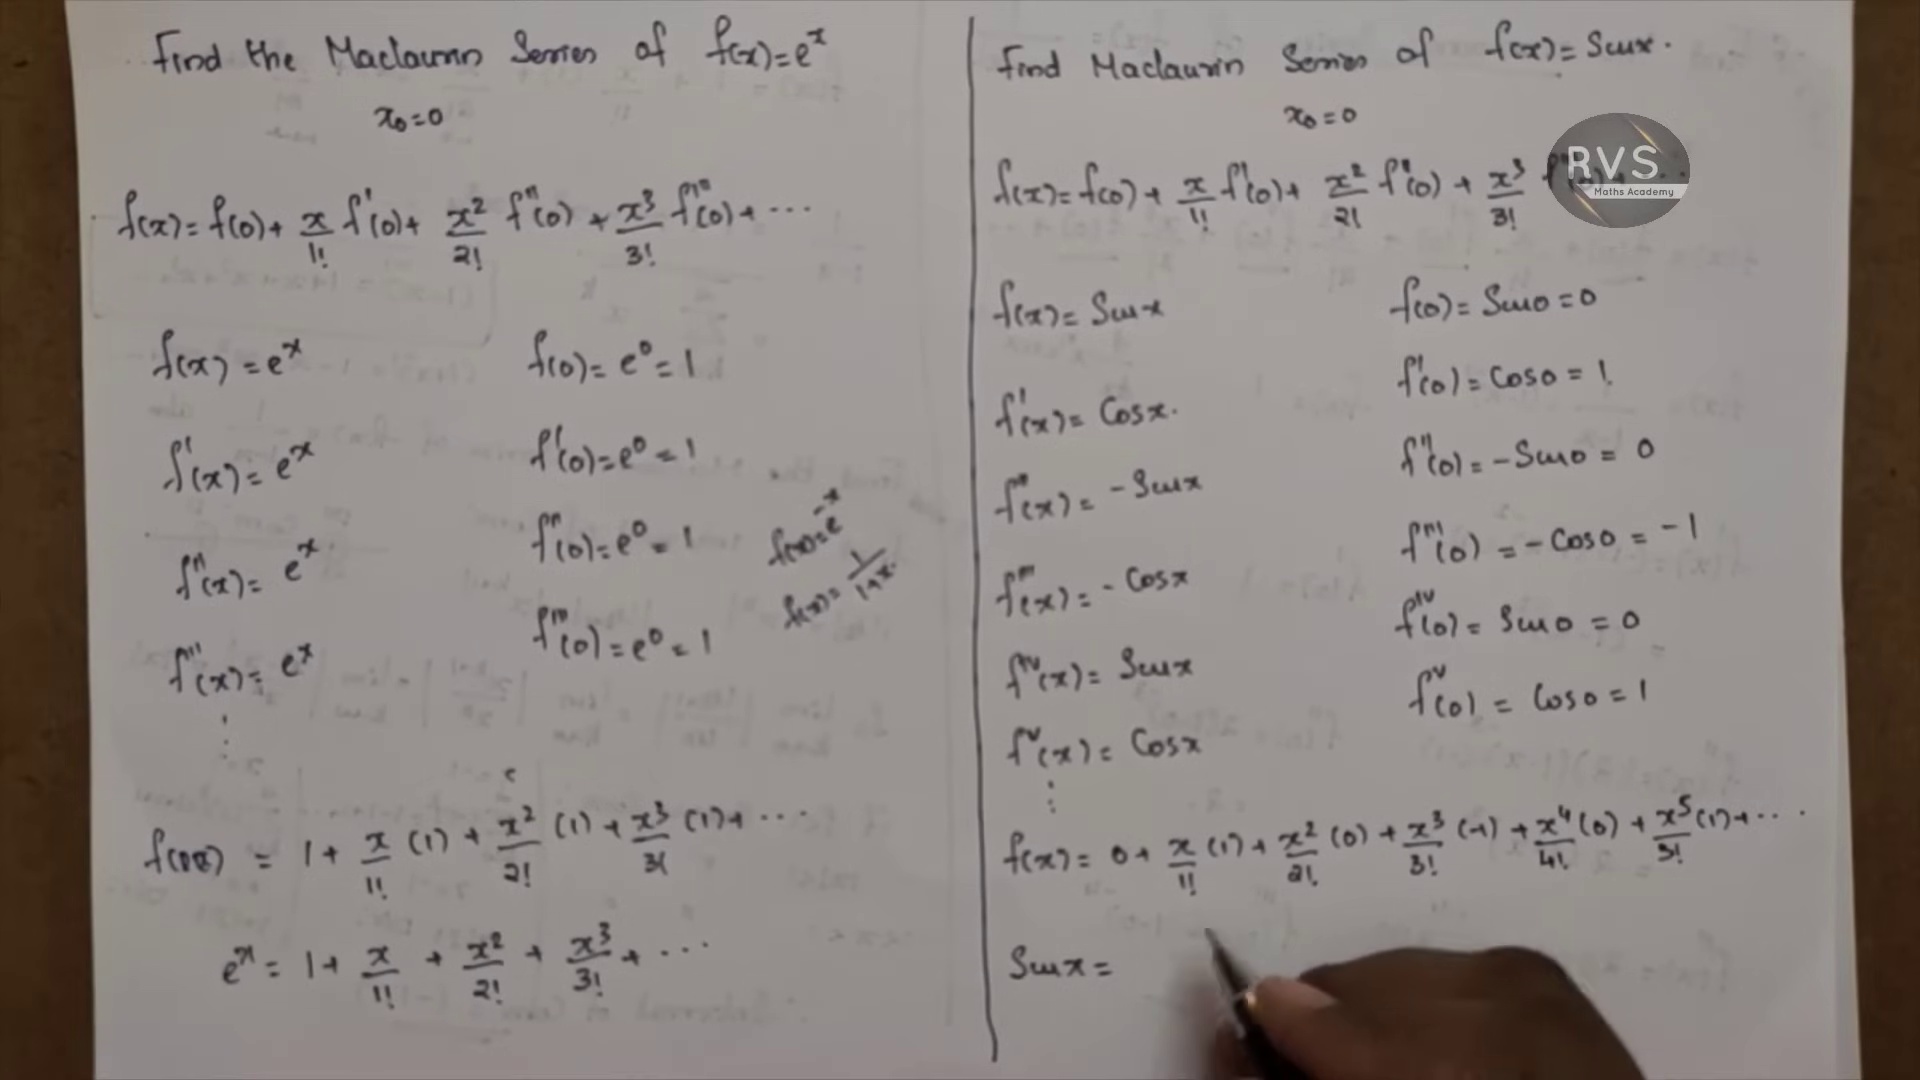 Find the Maclaurin Series of f(x)=eˣ
x₀=0
f(x)=f(0)+ x/1! f'(0)+ x²/2! f''(0) + x³/3! f'''(0)+ ...
f(x) = eˣ
f(0)= e⁰= 1
f'(x)= eˣ
f'(0)=e⁰=1
f''(x)= eˣ
f''(0)=e⁰=1
f'''(x)= eˣ
f'''(0)=e⁰=1
f(x)=e⁻ˣ
f(x)= 1/1+x.
= 1+ x/1! (1) + x²/2! (1) + x³/3! (1)+ ...
eˣ= 1+ x/1! + x²/2! + x³/3! + ...
Find Maclaurin Series of f(x)= Sinx.
x₀=0
RVS
Maths Academy
f(x)=f(0)+ x/1! f'(0)+ x²/2! f''(0) + x³/3!
f(x)= Sinx
f(0)= Sin0=0
f'(x)= Cosx.
f'(0)= Cos0=1.
f''(x)= -Sinx
f''(0)= -Sin0= 0
f'''(x)= -Cosx
f'''(0) = -Cos0= -1
fⁱᵛ(x)= Sinx
fⁱᵛ(0)= Sin0 = 0
fᵛ(x)= Cosx
fᵛ(0) = Cos0=1
f(x)= 0+ x/1! (1)+ x²/2! (0)+ x³/3! (-1)+ x⁴/4! (0)+ x⁵/5! (1)+ ...
Sinx=